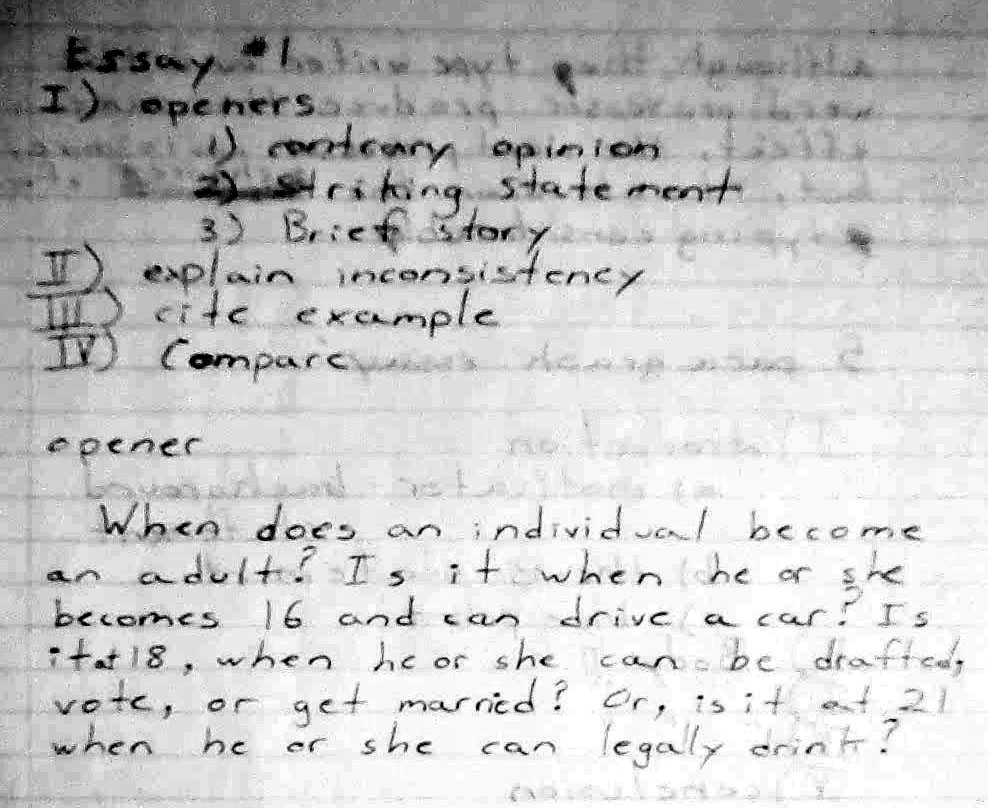 Essay #1
I) openers
1) contrary opinion
2) Striking statement
3) Brief story
II) explain inconsistency
III) cite example
IV) Compare
opener
When does an individual become
an adult? Is it when he or she
becomes 16 and can drive a car? Is
it at 18, when he or she can be drafted,
vote, or get married? Or, is it at 21
when he or she can legally drink?